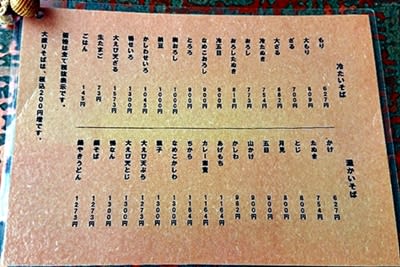 冷たいそば
もり 627円
大もり 809円
ざる 700円
大ざる
冷たぬき 754円
おろし 773円
おろしたぬき 818円
冷五目 900円
なめこおろし 900円
とろろ 900円
おろし 1000円
納豆 1000円
かしわせいろ 1045円
鴨せいろ 1300円
大えび天ざる 1573円
生たまご 73円
ごはん 145円
価格は全て税抜表示です。
大盛りそばは、税込200円増です。
温かいそば
かけ 627円
たぬき 754円
とじ 800円
月見 800円
五目 900円
山かけ 900円
かしわ 982円
あげもち 1164円
カレー南蛮 1164円
ちから 1164円
なめこかしわ 1300円
親子 1300円
大えび天ぷら 1273円
大えび天とじ 1300円
鴨なん 1300円
鍋そば 1273円
鍋やきうどん 1273円